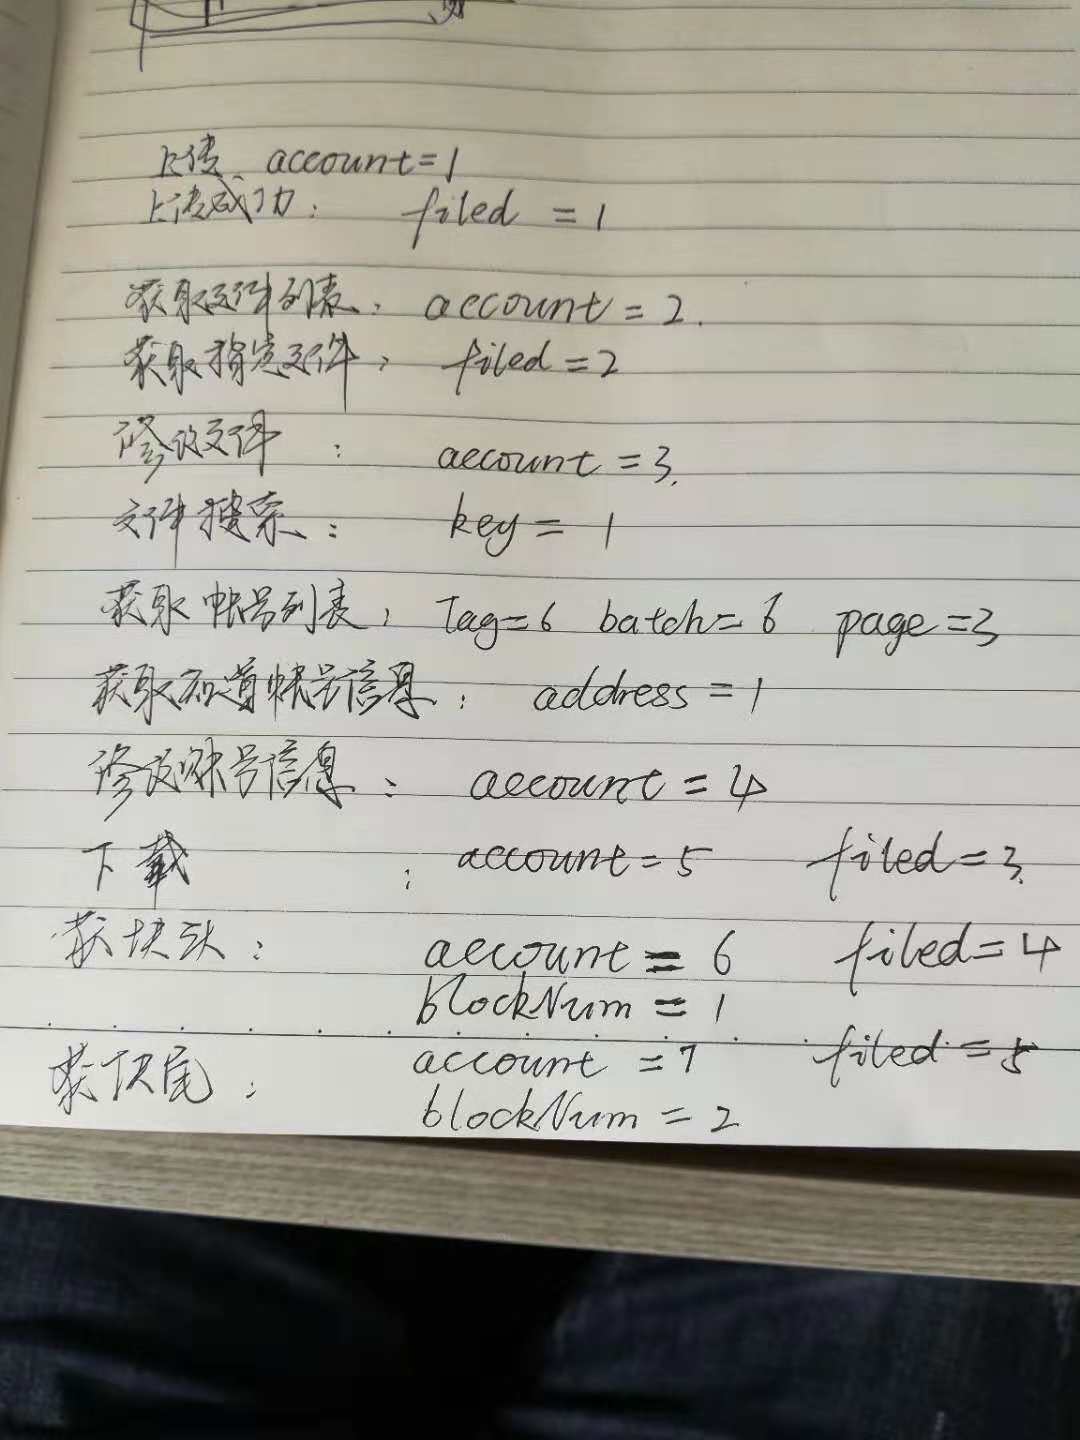 上传、account=1
上传成功: filed = 1
获取文件列表: account = 2.
获取指定文件: filed = 2
修改文件: account = 3.
文件搜索: key = 1
获取帐号列表: Tag=6 batch=6 page=3
获取知道帐号信息: address = 1
修改账号信息: account = 4
下载: account = 5 filed = 3.
获块头: account = 6 filed = 4
blockNum = 1
获块尾: account = 7 filed = 5
blockNum = 2